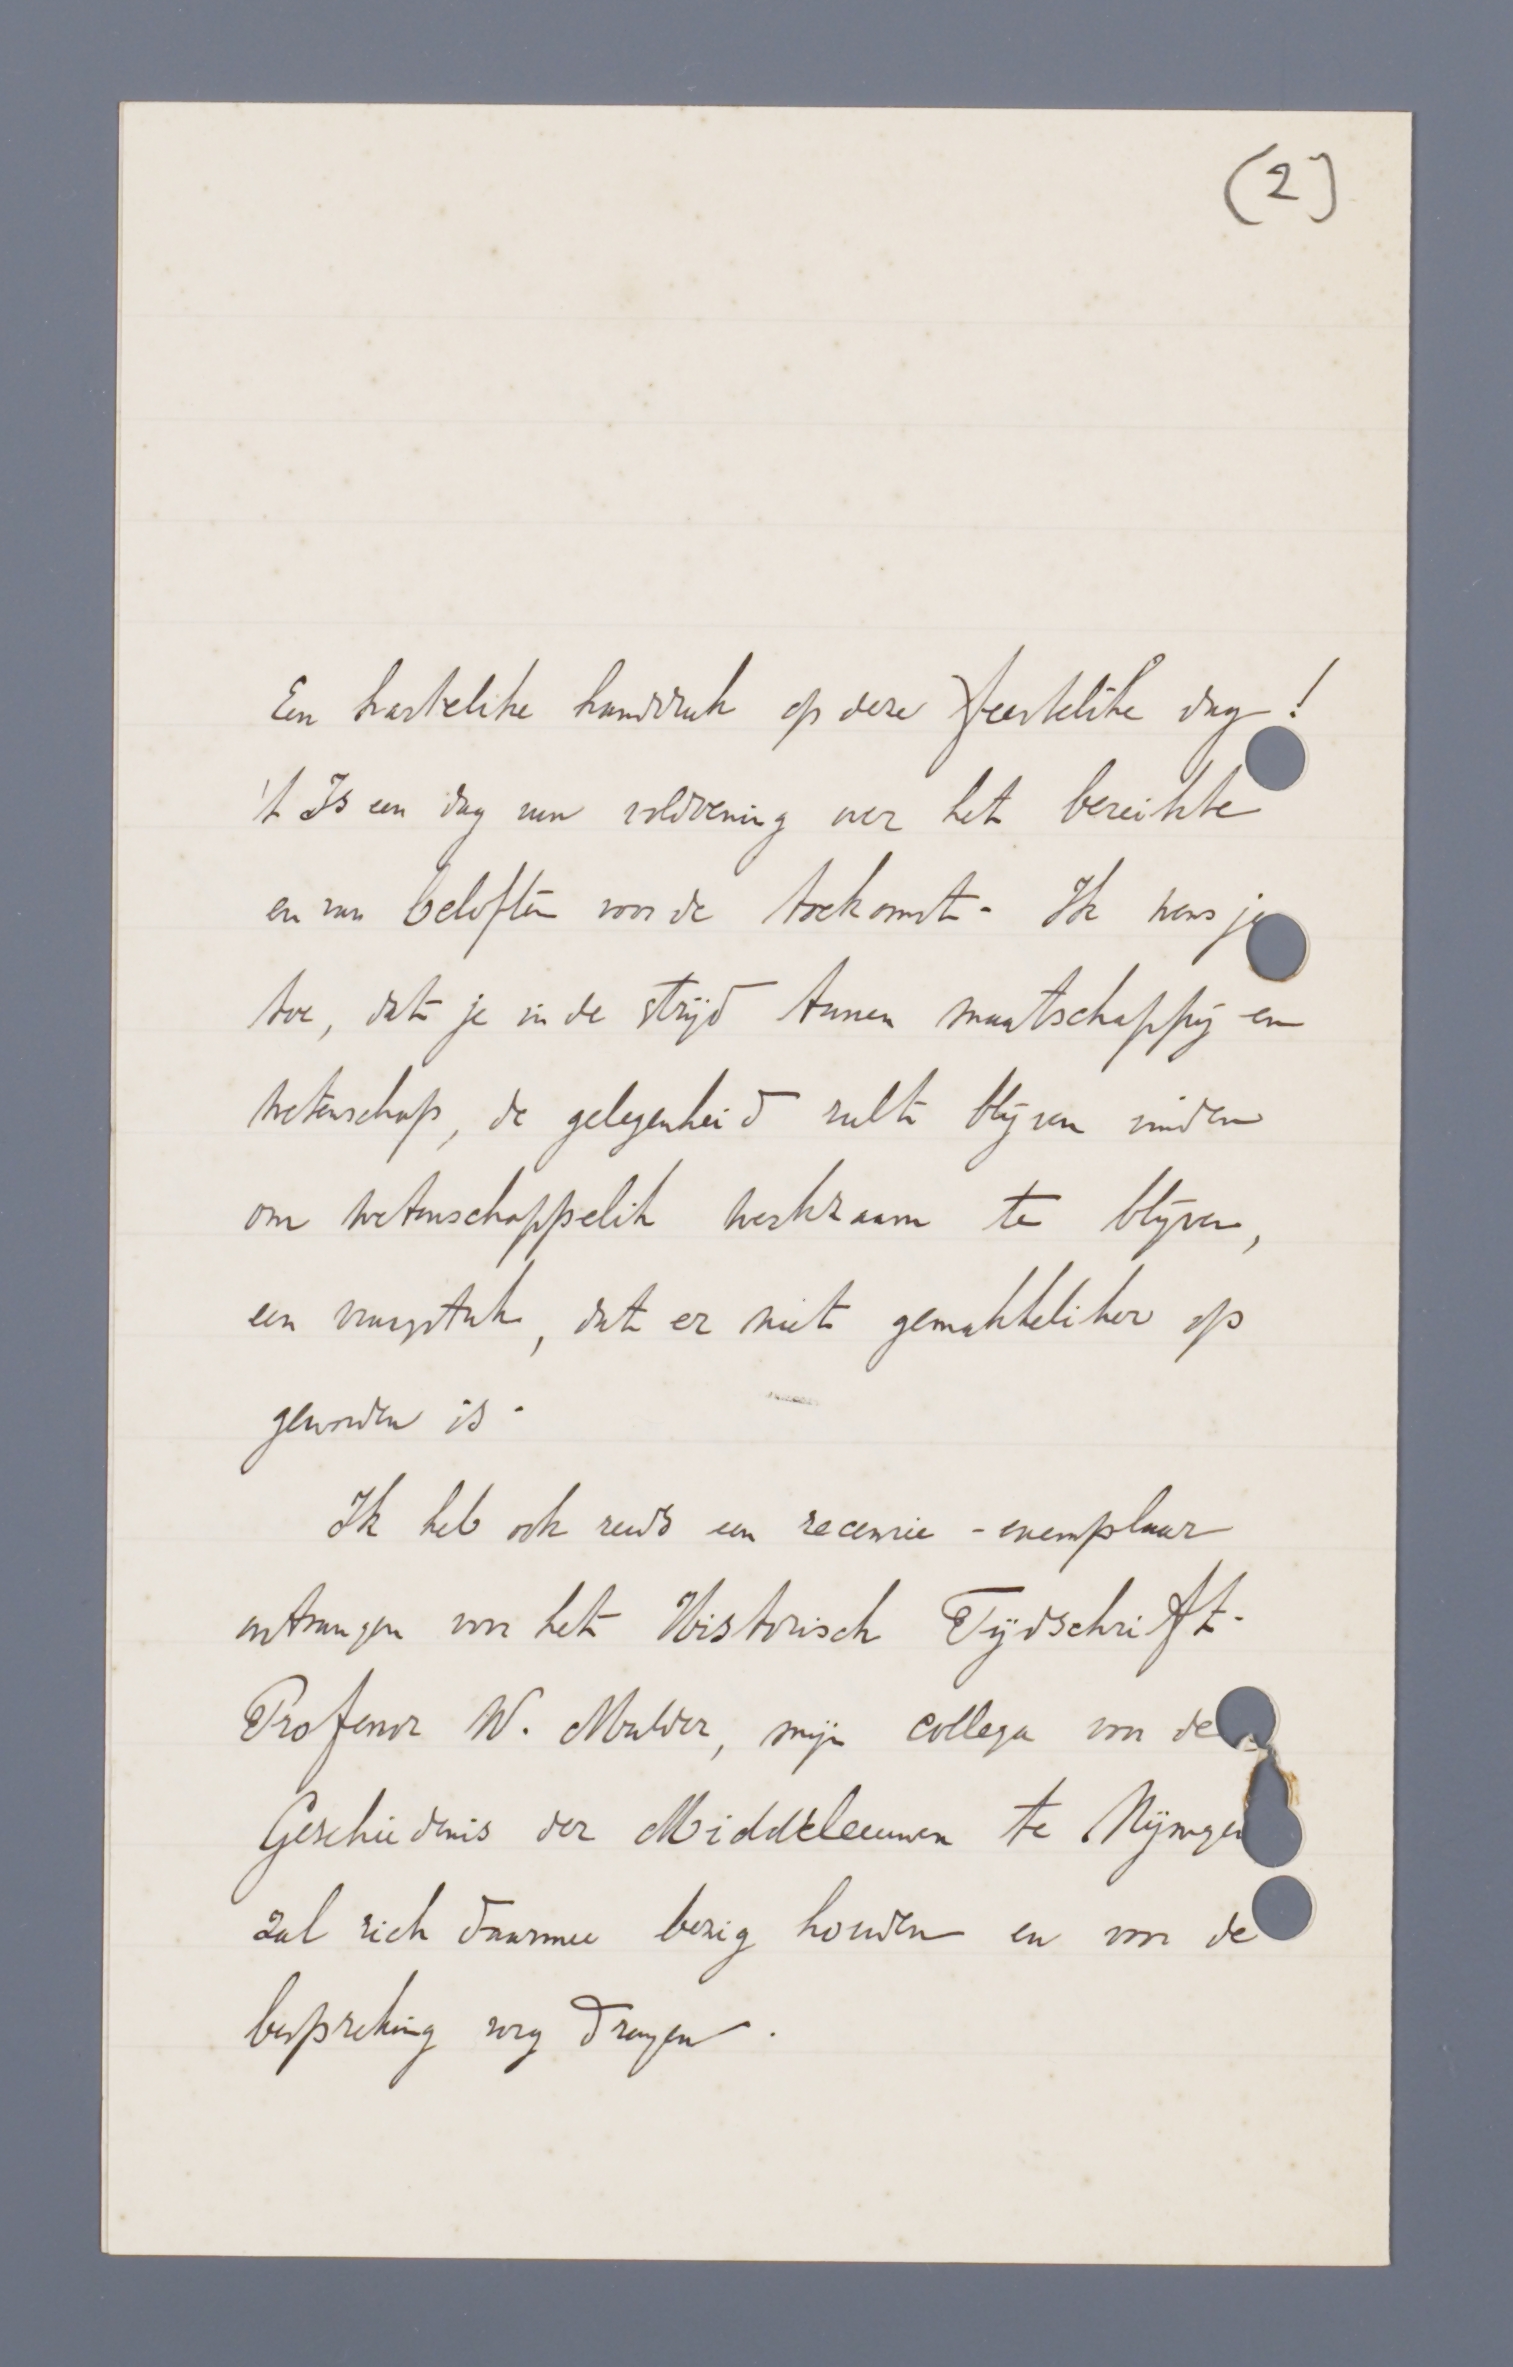 (2)
Een hartelike handdruk op deze feestelike dag!
't Is een dag van voldoening over het bereikte
en van beloften voor de toekomst. Ik wens je
toe, dat je in de strijd tussen maatschappij en
wetenschap, de gelegenheid zult blijven vinden
om wetenschappelik werkzaam te blijven,
een vraagstuk, dat er niet gemakkeliker op
geworden is.
Ik heb ook reeds een recensie-exemplaar
ontvangen voor het Historisch Tijdschrift.
Professor W. Mulder, mijn collega voor de
Geschiedenis der Middeleeuwen te Nijmegen
zal zich daarmee bezig houden en voor de
bespreking zorg dragen.